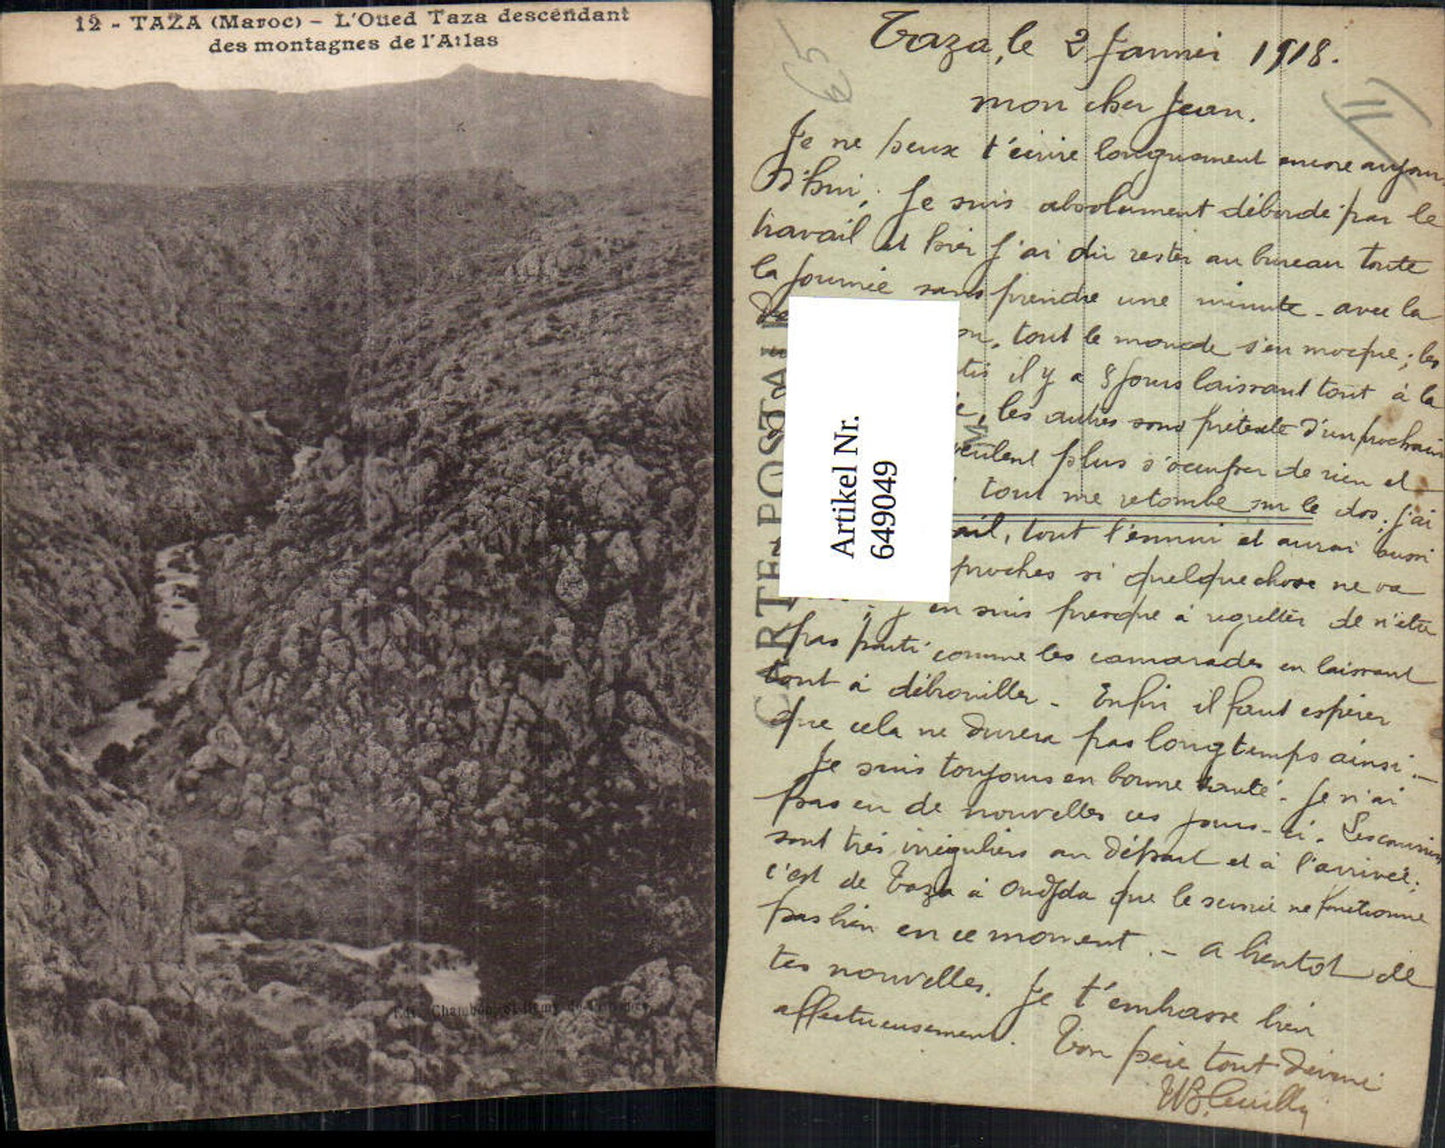 12 - TAZA (Maroc) - L'Oued Taza descendant
des montagnes de l'Atlas
Taza, le 2 Janvier 1918.
mon cher Jean.
Je ne peux t'écrire longuement encore aujour
d'hui; Je suis absolument débordé par le
travail et hier j'ai dû rester au bureau toute
la journée sans prendre une minute - avec la
on, tout le monde s'en moque; les
tis il y a 8 jours laissant tout à la
les autres sous prétexte d'un prochain
veulent plus s'occuper de rien et
tout me retombe sur le dos; j'ai
ail, tout l'ennui et aurai aussi
proches si quelque chose ne va
j'en suis presque à regretter de n'être
pas parti comme les camarades en laissant
tout à débrouiller - Enfin il faut espérer
que cela ne durera pas longtemps ainsi. -
Je suis toujours en bonne santé - Je n'ai
pas eu de nouvelles ces jours-ci. Les courriers
sont très irréguliers au départ et à l'arrivée;
c'est de Taza à Oudjda que le service ne fonctionne
pas bien en ce moment. - A bientôt de
tes nouvelles. Je t'embrasse bien
affectueusement. Ton père tout dévoué
CARTE POSTALE
Artikel Nr.
649049